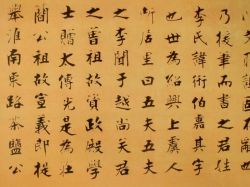 乃而書之君姓
李氏諱衎伯嘉其字
也世為紹興上虞人
所居里曰五夫五夫
之李聞于越尚矣君
之曾祖故資政殿學
士贈太傅光是為莊
簡公祖故宣義郎提
舉淮南東路茶鹽公